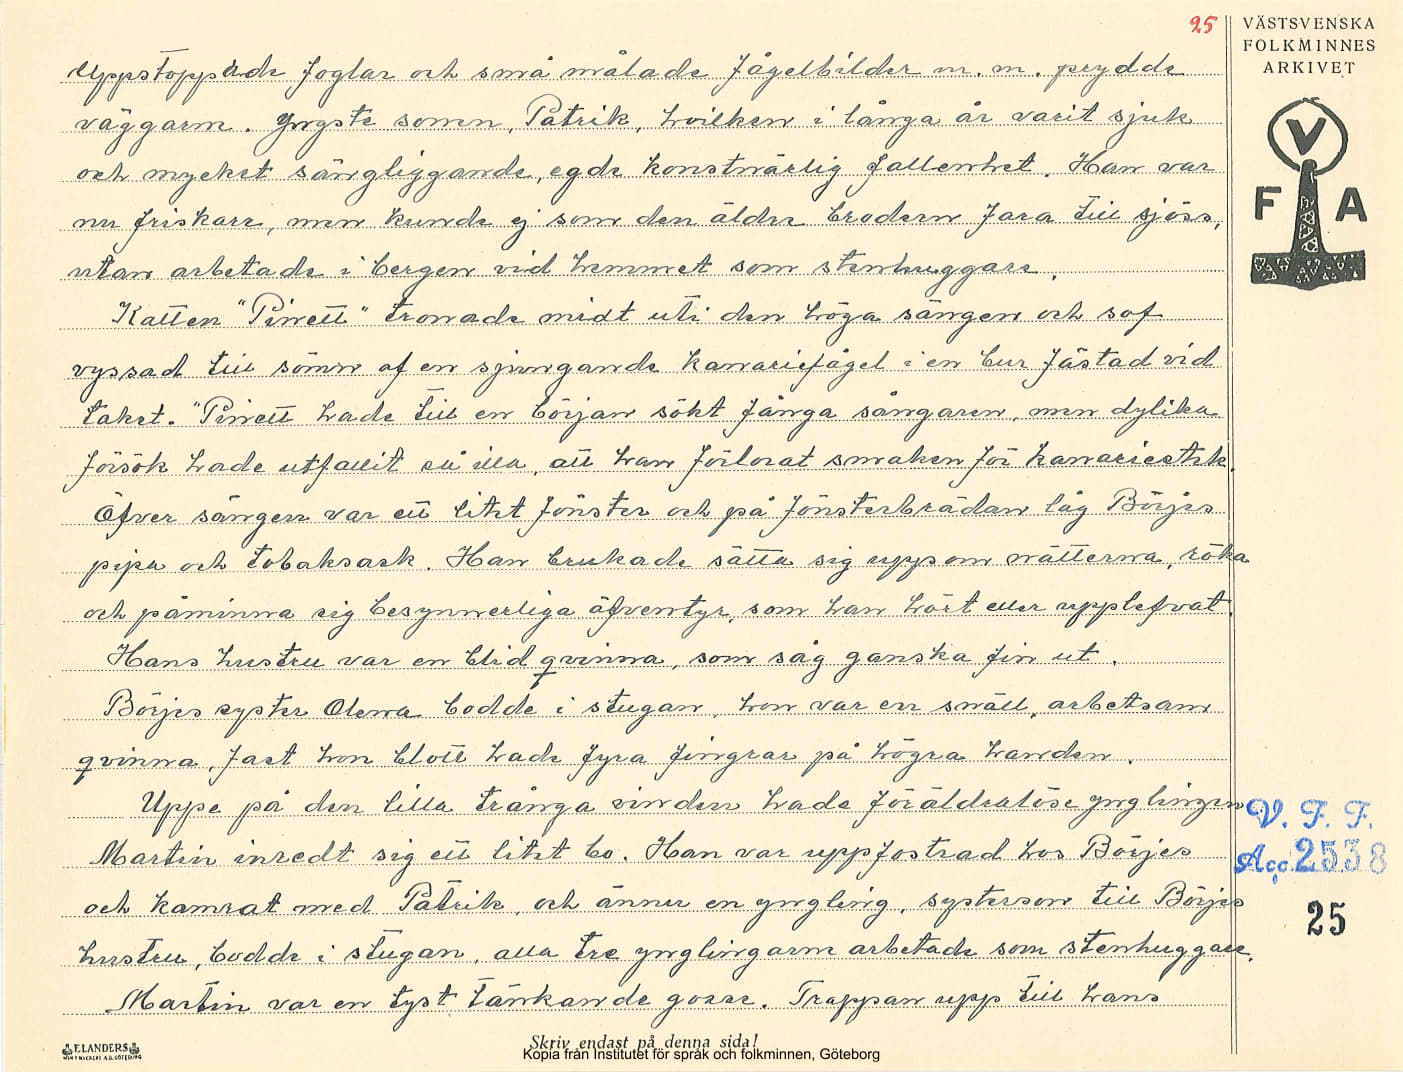 25
VÄSTSVENSKA
FOLKMINNES
ARKIVET
Uppstoppade foglar och små målade fågelbilder m. m. prydde
väggarne. Yngste sonen, Patrik, hvilken i långa år varit sjuk
och mycket sängliggande, egde konstnärlig fallenhet. Han var
nu friskare, men kunde ej som den äldre brodern fara till sjöss,
utan arbetade i bergen vid hemmet som stenhuggare.
Katten "Pirrett" tronade midt uti den höga sängen och sof
vyssad till sömn af en sjungande kanariefågel i en bur fästad vid
taket. "Pirrett hade till en början sökt fånga sångaren, men dylika
försök hade utfallit så illa, att han förlorat smaken för kanariestek.
Öfver sängen var ett litet fönster och på fönsterbrädan låg Börjes
pipa och tobaksask. Han brukade sätta sig upp om nätterna, röka
och påminna sig besynnerliga äfventyr, som han hört eller upplefvat.
Hans hustru var en blid qvinna, som såg ganska fin ut.
Börjes syster Olena bodde i stugan, hon var en snäll, arbetsam
qvinna, fast hon blott hade fyra fingrar på högra handen.
Uppe på den lilla trånga vinden hade föräldralöse ynglingen
Martin inredt sig ett litet bo. Han var uppfostrad hos Börjes
och kamrat med Patrik, och ännu en yngling, systerson till Börjes
hustru, bodde i stugan, alla tre ynglingarne arbetade som stenhuggare.
Martin var en tyst tänkande gosse. Trappan upp till hans
V
F A
V. F. F.
Acc. 2538
25
ELANDERS
Skriv endast på denna sida!
Kopia från Institutet för språk och folkminnen, Göteborg